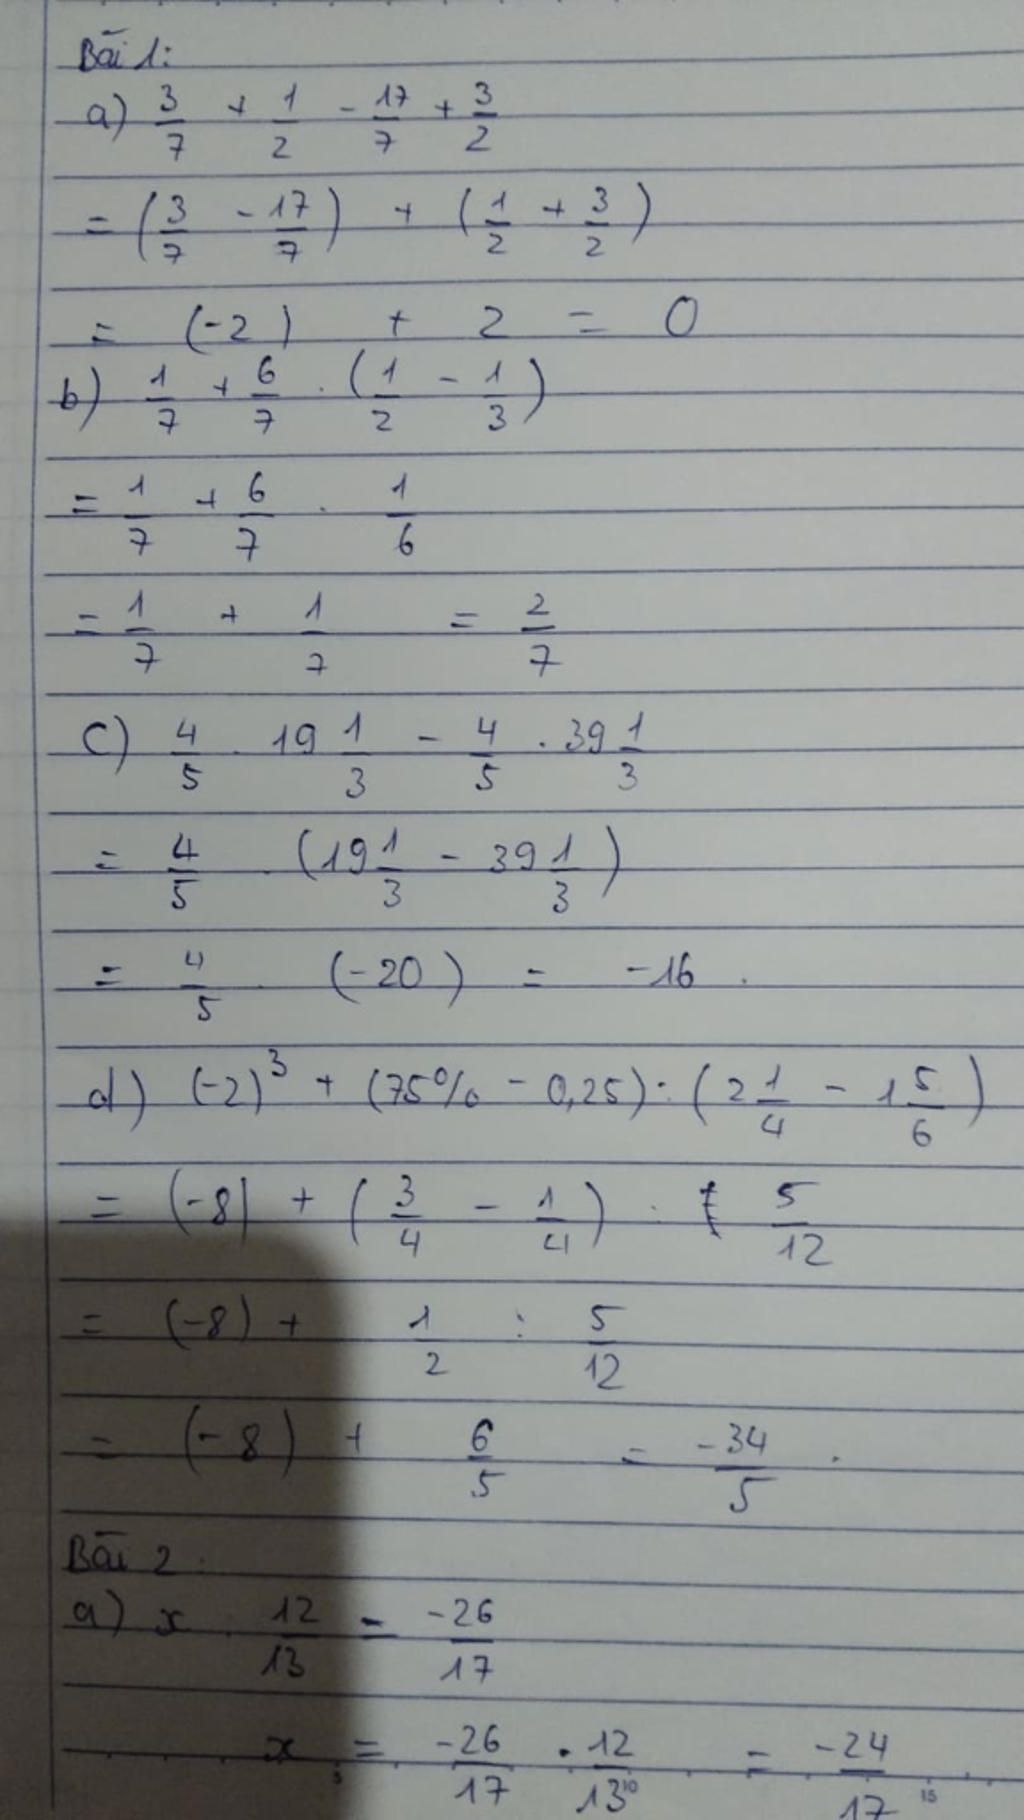 Bài 1:
a) 3/7 + 1/2 - 17/7 + 3/2
= (3/7 - 17/7) + (1/2 + 3/2)
= (-2) + 2 = 0
b) 1/7 + 6/7 . (1/2 - 1/3)
= 1/7 + 6/7 . 1/6
= 1/7 + 1/7 = 2/7
c) 4/5 . 19 1/3 - 4/5 . 39 1/3
= 4/5 . (19 1/3 - 39 1/3)
= 4/5 . (-20) = -16 .
d) (-2)³ + (75% - 0,25) : (2 1/4 - 1 5/6)
= (-8) + (3/4 - 1/4) : 5/12
= (-8) + 1/2 : 5/12
= (-8) + 6/5 = -34/5 .
Bài 2 :
a) x . 12/13 = -26/17
x = -26/17 . 12/13 = -24/17
5 10 15